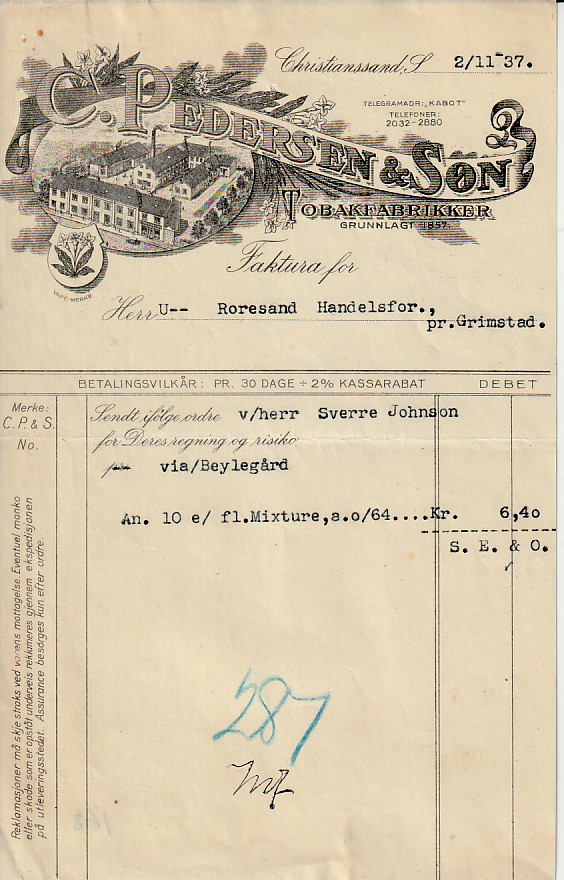 Christianssand, S 2/11-37.
C. PEDERSEN & SØN
TELEGRAMADR: „KABOT"
TELEFONER:
2032-2880
TOBAKFABRIKKER
GRUNNLAGT 1857.
VARE-MERKE
Faktura for
Herr U-- Roresand Handelsfor.,
pr.Grimstad.
BETALINGSVILKÅR: PR. 30 DAGE ÷ 2% KASSARABAT DEBET
Merke:
C. P. & S.
No.
Sendt ifølge ordre v/herr Sverre Johnson
for Deres regning og risiko
via/Beylegård
An. 10 e/ fl.Mixture,a.o/64....Kr. 6,40
S. E. & O.
Reklamasjoner må skje straks ved varens mottagelse. Eventuel manko
eller skade som er opstått underveis reklameres gjennem ekspedisjonen
på utleveringsstedet. Assurance besørges kun efter ordre.
287